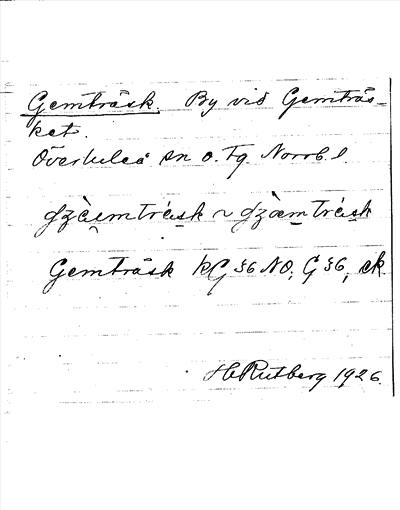 Gemträsk. By vid Gemträs-
ket.
Överluleå sn o. Tg. Norrb. l.
Gemträsk KG 36 NO; G 36, ek.
H. Rutberg 1926.